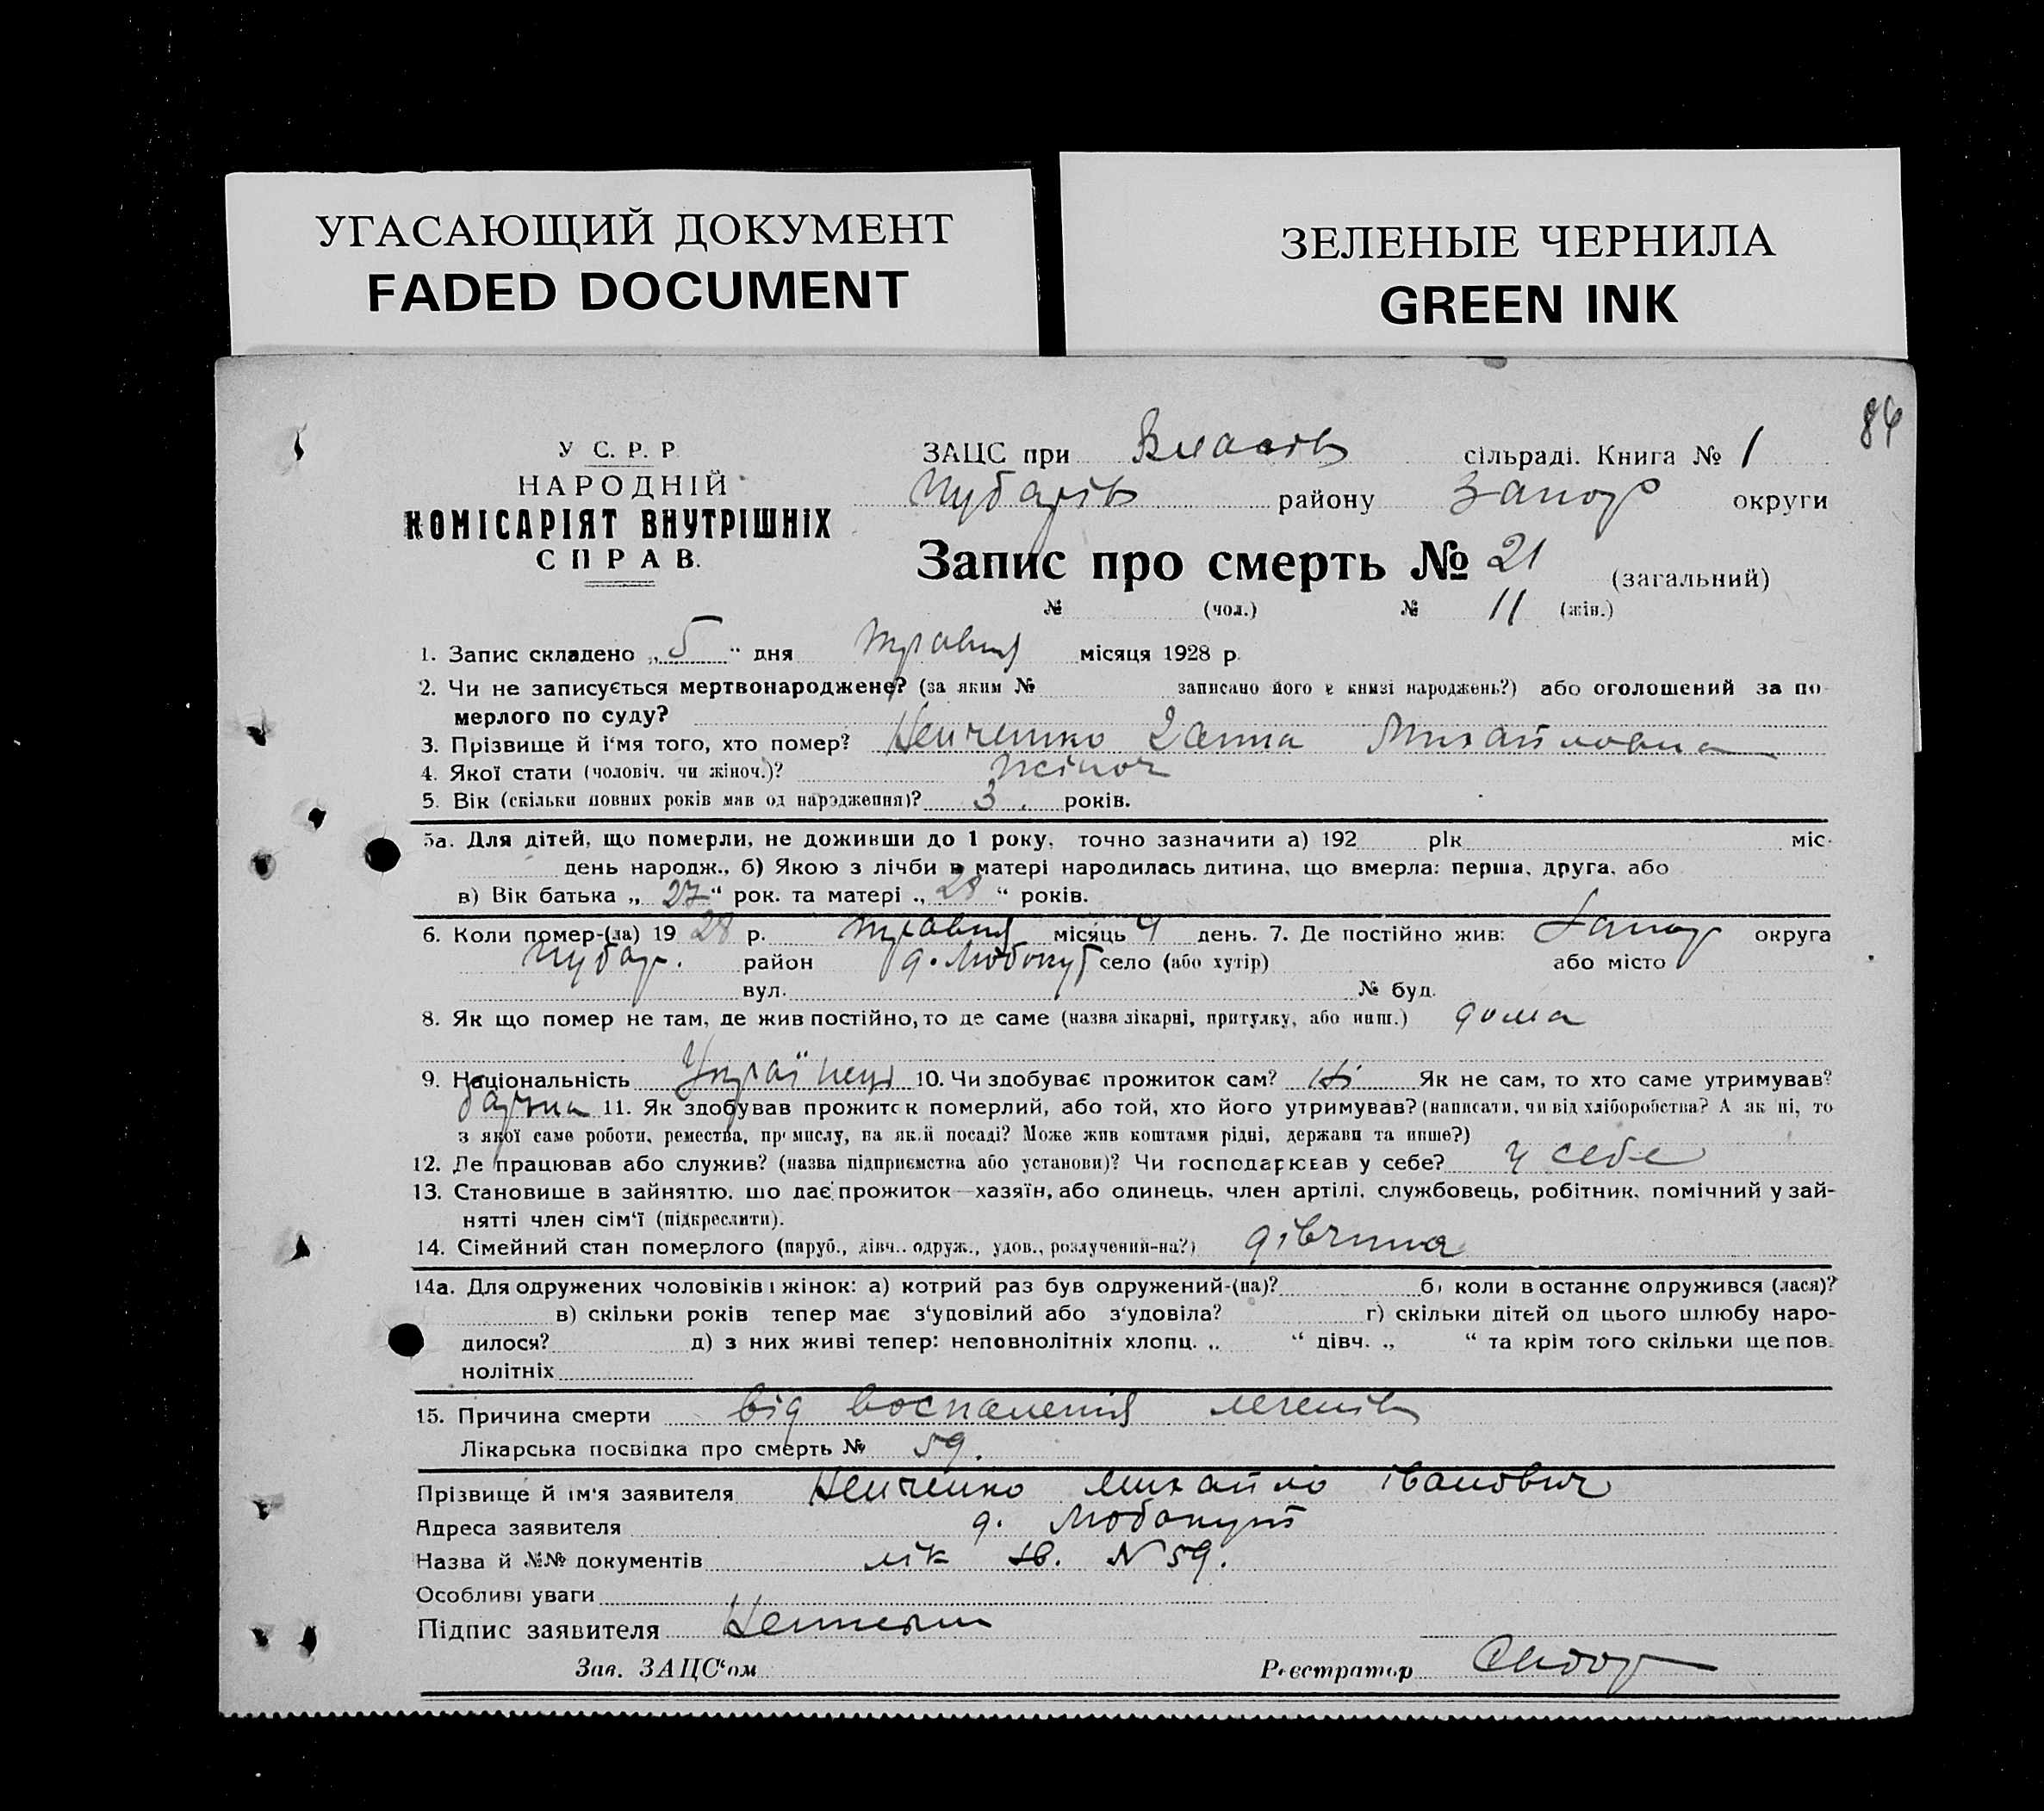 УГАСАЮЩИЙ ДОКУМЕНТ
FADED DOCUMENT
ЗЕЛЕНЫЕ ЧЕРНИЛА
GREEN INK
84
У С. Р. Р.
НАРОДНІЙ
КОМІСАРІЯТ ВНУТРІШНІХ
СПРАВ.
ЗАЦС при сільраді. Книга № 1
району Запор округи
Запис про смерть № 21 (загальний)
№ (чол.) № 11 (жін.)
1. Запис складено „ 5 “ дня травня місяця 1928 р.
2. Чи не записується мертвонароджене? (за яким № записано його в книзі народжень?) або оголошений за по
мерлого по суду?
3. Прізвище й і‘мя того, хто помер? Ганна Михайловна
4. Якої стати (чоловіч. чи жіноч.)? жіноч
5. Вік (скільки повних років мав од народження)? 3. років.
5а. Для дітей, що померли, не доживши до 1 року, точно зазначити а) 192 рік міс.
день народж., б) Якою з лічби в матері народилась дитина, що вмерла: перша, друга, або
в) Вік батька „ 27 “ рок. та матері „ 28 “ років.
6. Коли помер-(ла) 19 28 р. травня місяць 4 день. 7. Де постійно жив: Запор округа
район село (або хутір) або місто
вул. № буд.
8. Як що помер не там, де жив постійно, то де саме (назва лікарні, притулку, або инш.) дома
9. Національність 10. Чи здобуває прожиток сам? Ні Як не сам, то хто саме утримував?
11. Як здобував прожиток померлий, або той, хто його утримував? (написати, чи від хліборобства? А як ні, то
з якої саме роботи, ремества, промислу, на якій посаді? Може жив коштами рідні, держави та инше?)
12. Де працював або служив? (назва підприємства або установи)? Чи господарював у себе? у себе
13. Становище в зайняттю, що дає прожиток—хазяїн, або одинець, член артілі, службовець, робітник, помічний у зай-
нятті член сім‘ї (підкреслити).
14. Сімейний стан померлого (паруб., дівч., одруж., удов., розлучений-на?) дівчина
14а. Для одружених чоловіків і жінок: а) котрий раз був одружений-(на)? б) коли востаннє одружився (лася)?
в) скільки років тепер має з‘удовілий або з‘удовіла? г) скільки дітей од цього шлюбу наро-
дилося? д) з них живі тепер: неповнолітніх хлопц. „ “ дівч. „ “ та крім того скільки ще пов.
нолітніх
15. Причина смерти від воспаления легенів
Лікарська посвідка про смерть № 59.
Прізвище й ім‘я заявителя Михайло Іванович
Адреса заявителя
Назва й №№ документів лік N 59.
Особливі уваги
Підпис заявителя
Зав. ЗАЦС‘ом Реєстратор